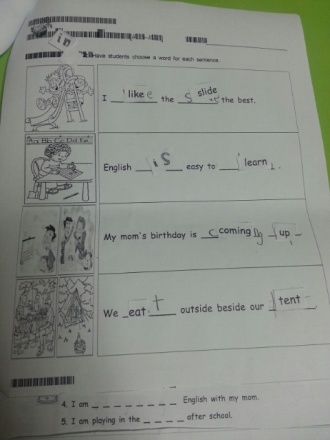 in
Have students choose a word for each sentence.
I like the slide the best.
English is easy to learn.
My mom's birthday is coming up
We eat outside beside our tent
4. I am _ _ _ _ _ _ _ _ English with my mom.
5. I am playing in the _ _ _ _ after school.